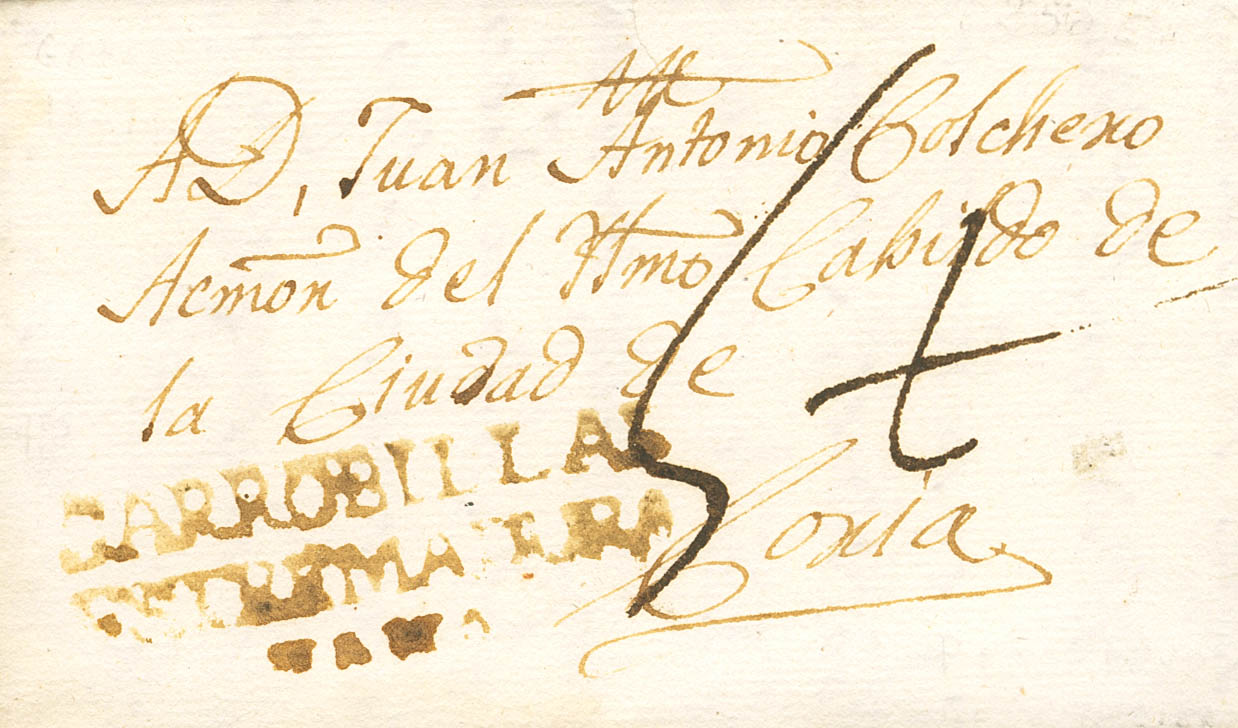 A D, Juan Antonio Colchero
Acmōn del Yltmo Cabildo de
la Ciudad de
Coria
GARROBILLAS